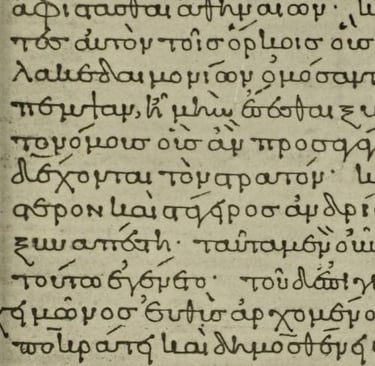 αφίστασθαι αθηναίων· κ
τὸς αυτὸν τοῖσ ὅρκοισ οἷς
λακεδαιμονίων ὀμόσαντ
πεμψαν, ἦ μὴν ἔσεσθαι ξυ
τονόμοις οὓς ἂν προσαγά
δέχονται τὸν στρατόν· κ
στερον καὶ στάγειρος ἀνδρί
ξυναπέστη· ταῦτα μὲν οὖν
τούτω ἐγένετο· τοῦ δ' ἐπιγι
χειμῶνος ευθὺσ ἀρχομένο
ποκράτει καὶ δημοσθένει